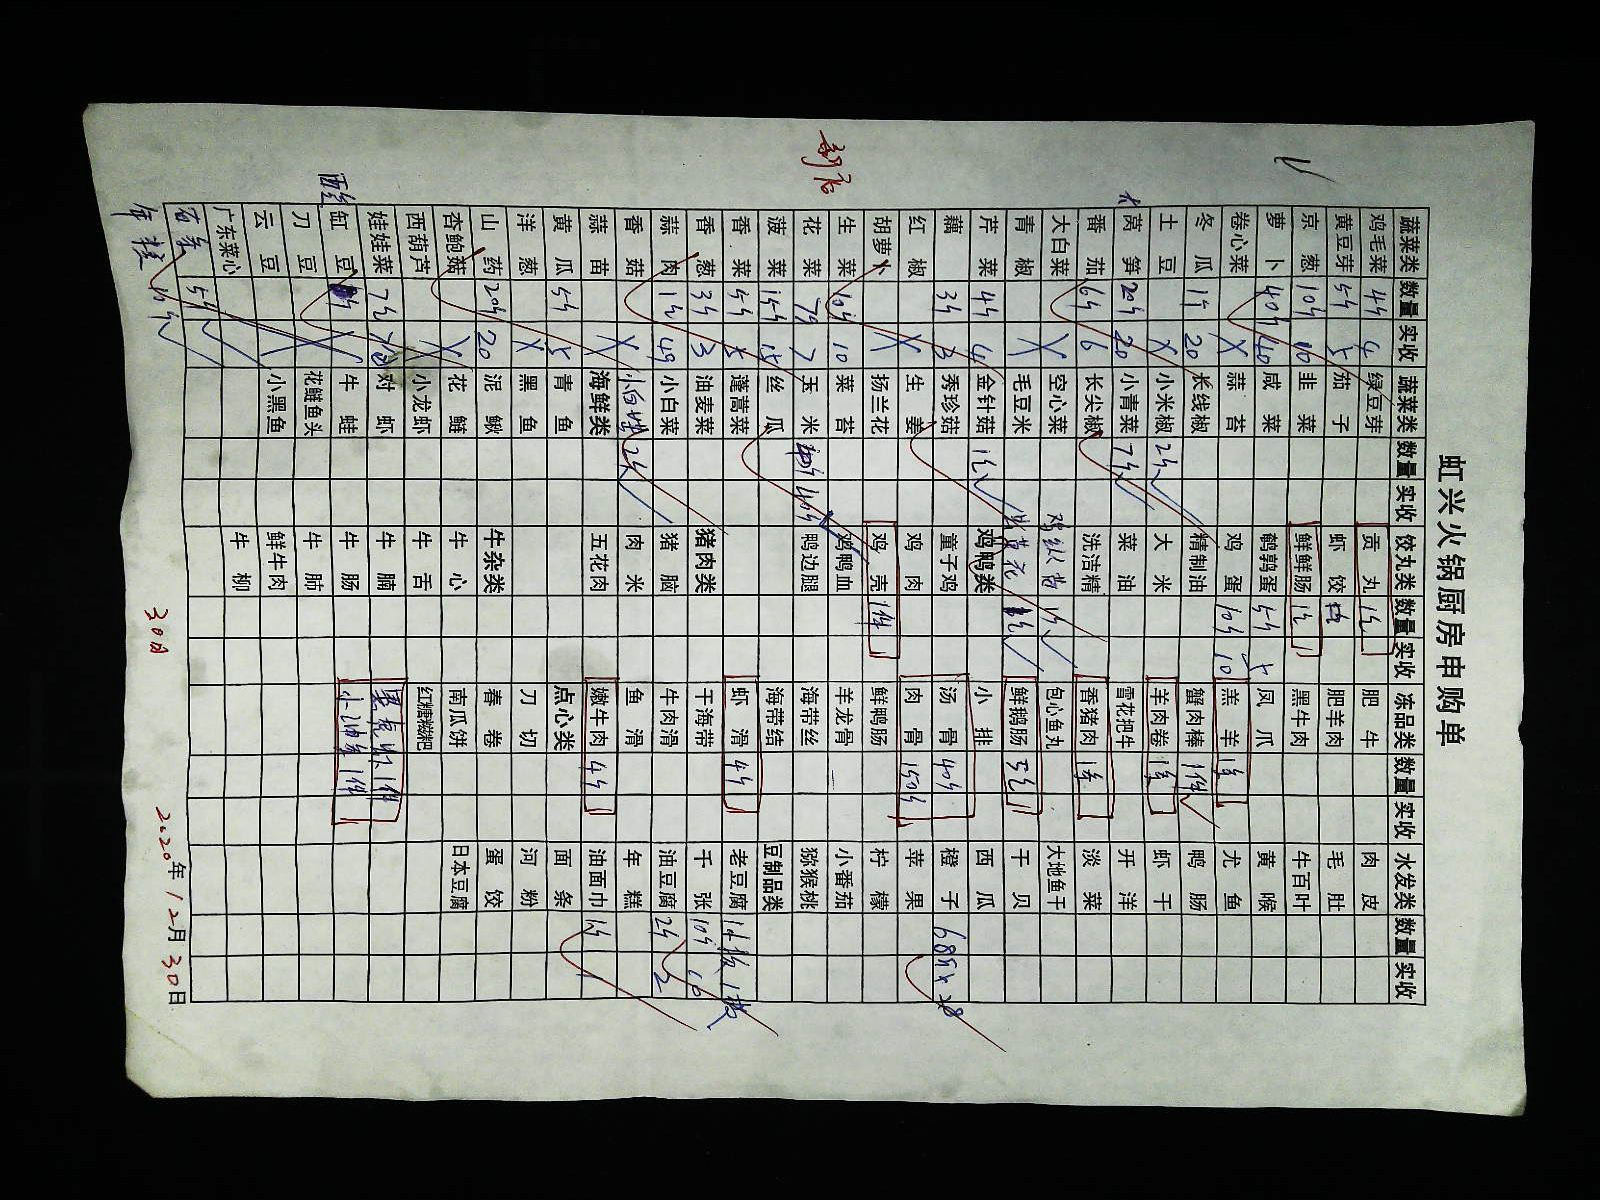 虹兴火锅厨房申购单
新店
蔬菜类 数量 实收 蔬菜类 数量 实收 饺丸类 数量 实收 冻品类 数量 实收 水发类 数量 实收
鸡毛菜 4斤 4 绿豆芽 贡丸 1包 肥牛 肉皮
黄豆芽 5斤 5 茄子 虾饺 肥羊肉 毛肚
京葱 10斤 10 韭菜 鲜鲜肠 1包 黑牛肉 牛百叶
萝卜 40斤 40 咸菜 鹌鹑蛋 5斤 5 凤爪 黄喉
卷心菜 X 蒜苔 鸡蛋 10斤 10 羔羊 1条 尤鱼
冬瓜 1个 20 长线椒 精制油 蟹肉棒 1件 鸭肠
土豆 X 小米椒 2斤 大米 羊肉卷 1条 虾干
莴笋 20斤 20 小青菜 7斤 菜油 雪花把牛 开洋
番茄 6斤 6 长尖椒 洗洁精 香猪肉 1条 淡菜
大白菜 X 空心菜 包心鱼丸 大地鱼干
青椒 X 毛豆米 鲜鹅肠 5包 干贝
芹菜 4斤 4 金针菇 1包 鸡鸭类 小排 西瓜
藕 3斤 3 秀珍菇 童子鸡 汤骨 40斤 橙子
红椒 X 生姜 鸡肉 肉骨 150斤 苹果
胡萝卜 X 扬兰花 鸡壳 1件 鲜鸭肠 柠檬
生菜 10斤 10 菜苔 鸡鸭血 羊龙骨 小番茄
花菜 7斤 7 玉米 40斤 鸭边腿 海带丝 猕猴桃
菠菜 15斤 15 丝瓜 海带结 豆制品类
香菜 5斤 5 蓬蒿菜 虾滑 4斤 老豆腐 1板 1板
香葱 3斤 3 油麦菜 猪肉类 干海带 千张 10斤 10
蒜肉 49 小白菜 猪脑 牛肉滑 油豆腐 2斤 2
香菇 X 2斤 肉米 鱼滑 年糕
蒜苗 X 海鲜类 五花肉 嫩牛肉 4斤 油面巾 1斤 1
黄瓜 5斤 5 青鱼 点心类 面条
洋葱 X 黑鱼 刀切 河粉
山药 20斤 20 泥鳅 牛杂类 春卷 蛋饺
杏鲍菇 X 花鲢 牛心 南瓜饼 日本豆腐
西葫芦 X 小龙虾 牛舌 红糖糍粑
娃娃菜 7包 7包 对虾 牛腩 1件
酸 缸豆 X 牛蛙 牛肠 小油条 1件
刀豆 X 花鲢鱼头 牛肺
云豆 X 小黑鱼 鲜牛肉
广东菜心 牛柳
5斤
年糕
30日
2020年12月30日